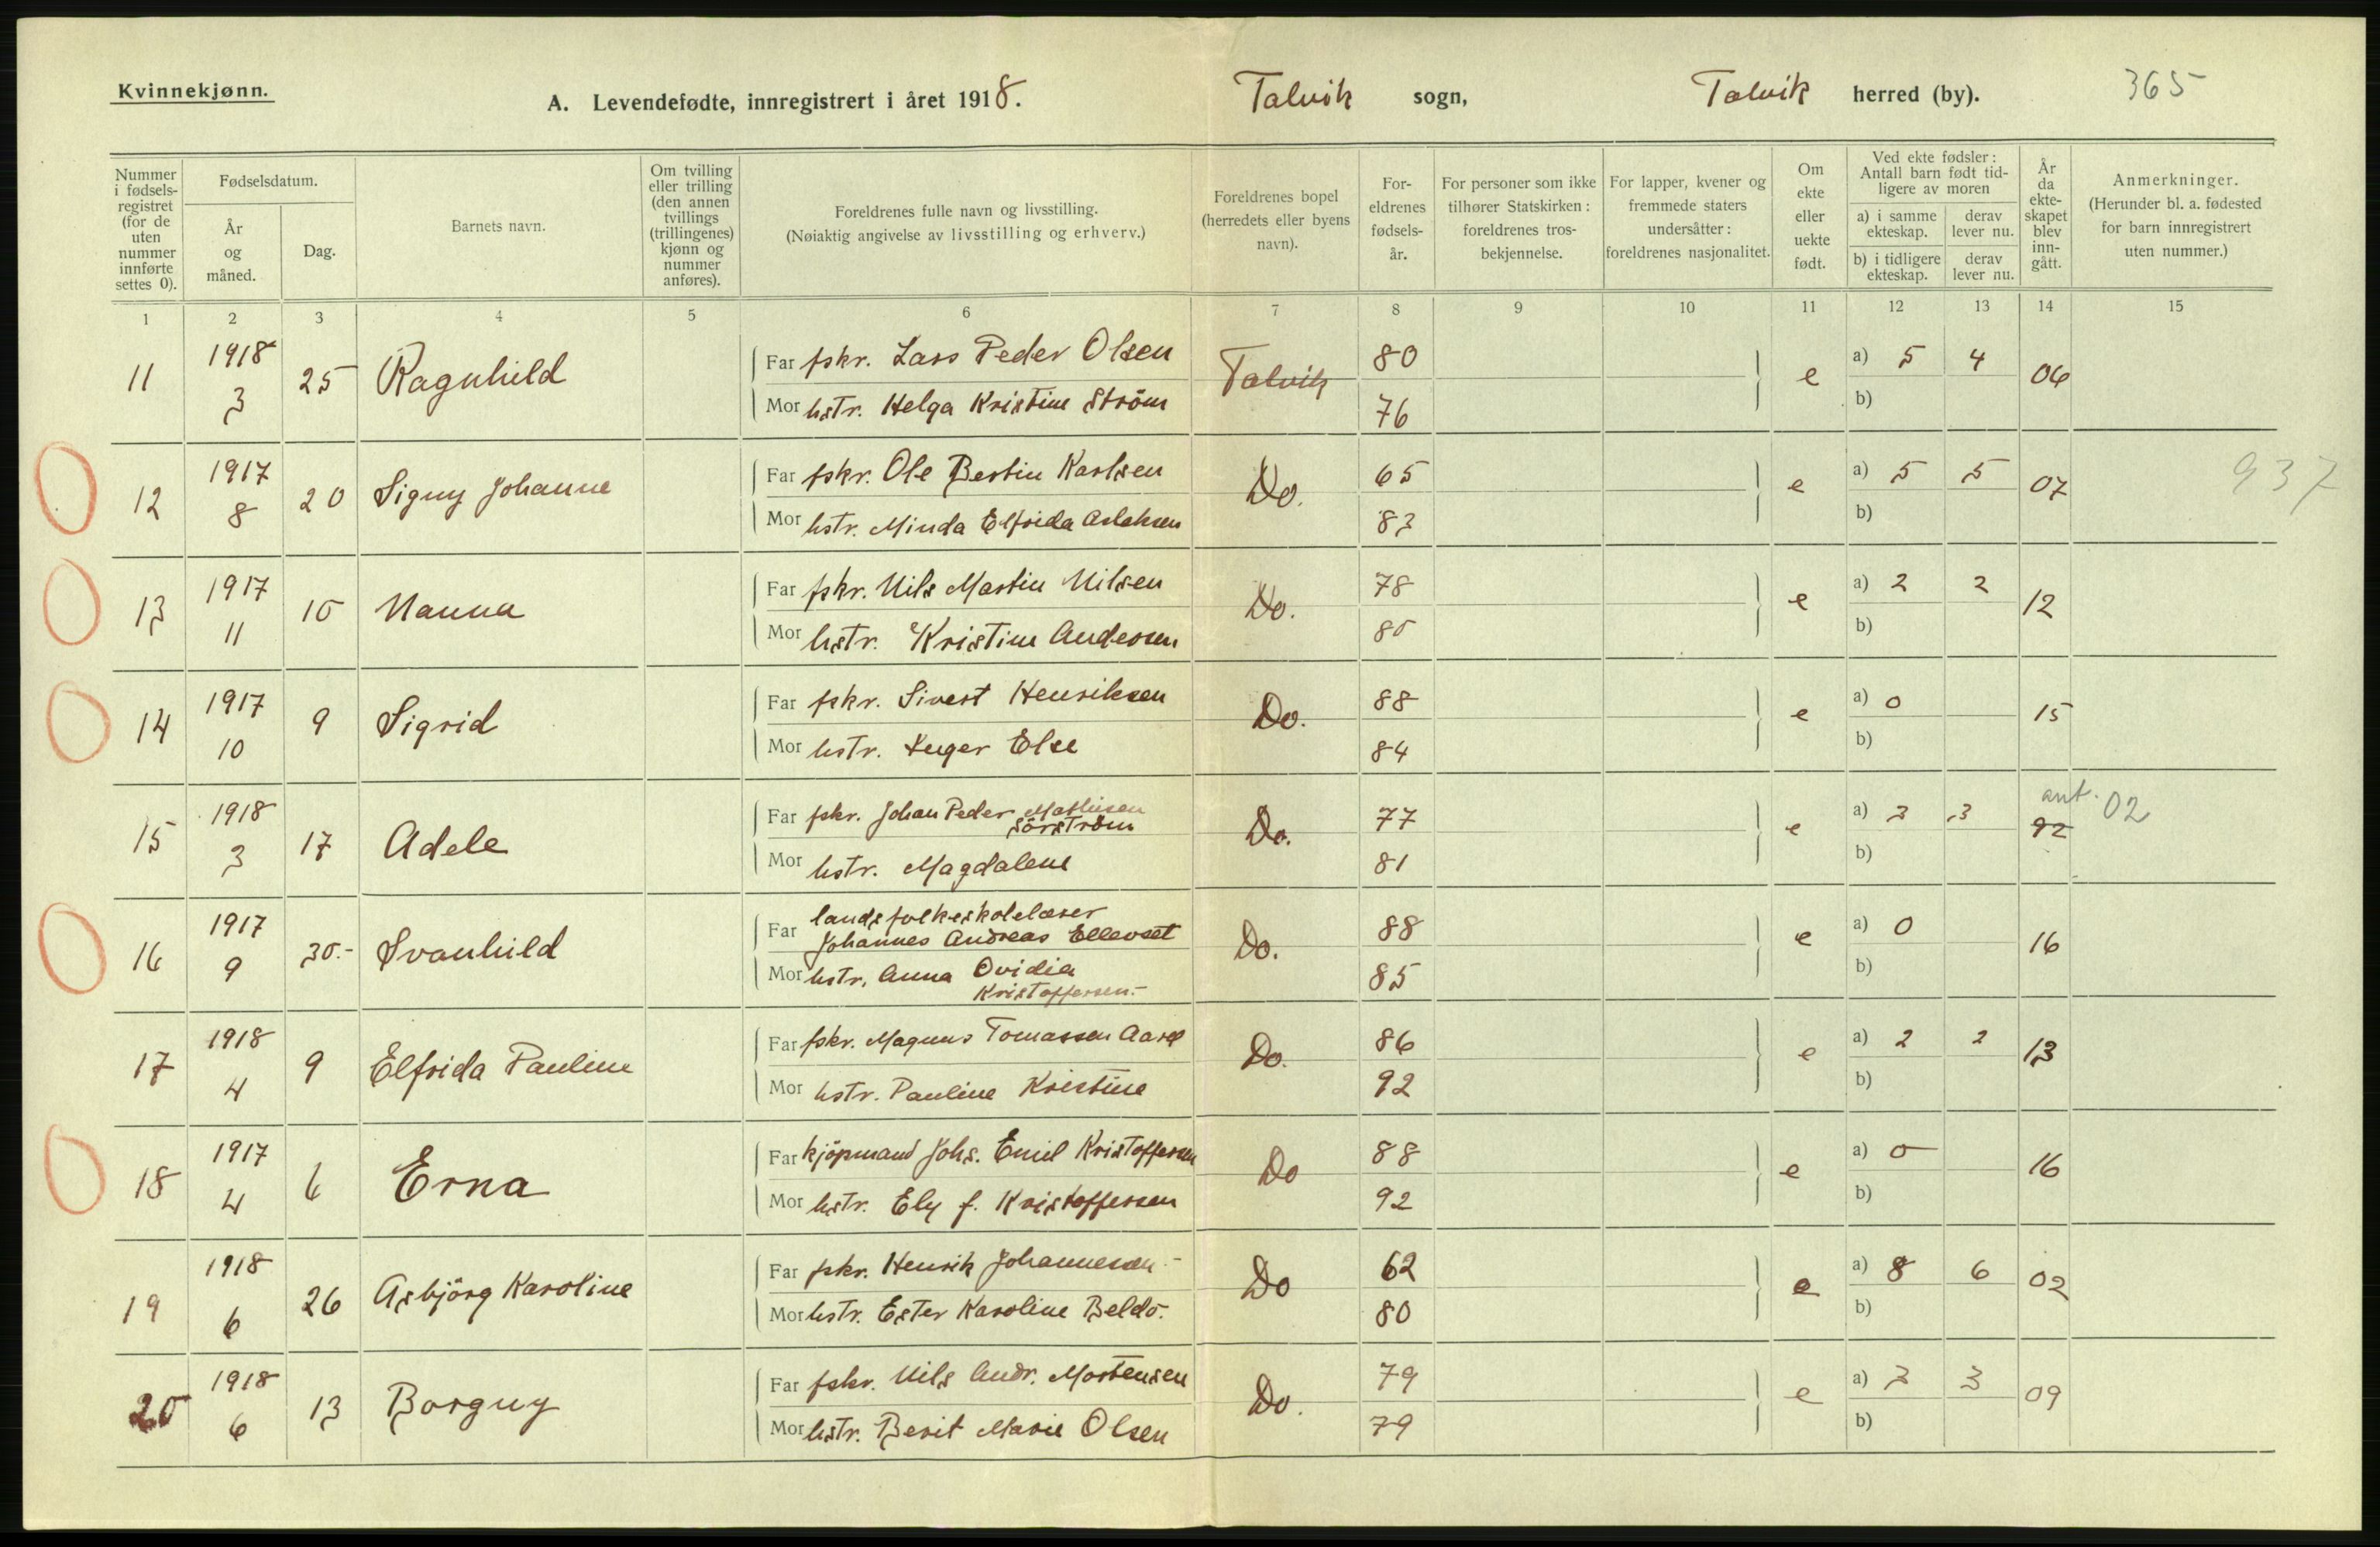 Kvinnekjønn.
A. Levendefødte, innregistrert i året 1918. Talvik sogn, Talvik herred (by). 365
Nummer i fødsels-registret (for de uten nummer innførte settes 0). Fødselsdatum. År og måned. Dag. Barnets navn. Om tvilling eller trilling (den annen tvillings (trillingenes) kjønn og nummer anføres). Foreldrenes fulle navn og livsstilling. (Nøiaktig angivelse av livsstilling og erhverv.) Foreldrenes bopel (herredets eller byens navn). For-eldrenes fødsels-år. For personer som ikke tilhører Statskirken: foreldrenes tros-bekjennelse. For lapper, kvener og fremmede staters undersåtter: foreldrenes nasjonalitet. Om ekte eller uekte født. Ved ekte fødsler: Antall barn født tid-ligere av moren a) i samme ekteskap. derav lever nu. b) i tidligere ekteskap. derav lever nu. År da ekte-skapet blev inn-gått. Anmerkninger. (Herunder bl. a. fødested for barn innregistrert uten nummer.)
1 2 3 4 5 6 7 8 9 10 11 12 13 14 15
11 1918 3 25 Ragnhild Far fskr. Lars Peder Olsen Talvik 80 e a) 5 4 06
Mor hstr. Helga Kristine Ström 76 b)
12 1917 8 20 Signy Johanne Far fskr. Ole Bertin Karlsen Do. 65 e a) 5 5 07 937
Mor hstr. Minda Elfrida Aslaksen 83 b)
13 1917 11 10 Nanna Far fskr. Nils Martin Nilsen Do. 78 e a) 2 2 12
Mor hstr. Kristine Andersen 80 b)
14 1917 10 9 Sigrid Far fskr. Sivert Henriksen Do. 88 e a) 0 15
Mor hstr. Inger Else 84 b)
15 1918 3 17 Adele Far fskr. Johan Peder Mathisen Sörström Do. 77 e a) 3 3 92 ant. 02
Mor hstr. Magdalene 81 b)
16 1917 9 30.- Svanhild Far landsfolkeskolelærer Johannes Andreas Ellevset Do. 88 e a) 0 16
Mor hstr. Anna Ovidia Kristoffersen.- 85 b)
17 1918 4 9 Elfrida Pauline Far fskr. Magnus Tomassen Do. 86 e a) 2 2 13
Mor hstr. Pauline Kristine 92 b)
18 1917 4 6 Erna Far kjöpmand Johs. Emil Kristoffersen Do 88 e a) 0 16
Mor hstr. Ely f. Kristoffersen 92 b)
19 1918 6 26 Asbjörg Karoline Far fskr. Henrik Johannesen.- Do 62 e a) 8 6 02
Mor hstr. Ester Karoline Beldo. 80 b)
20 1918 6 13 Borgny Far fskr. Nils Andr. Mortensen Do. 79 e a) 3 3 09
Mor hstr. Berit Marie Olsen 79 b)